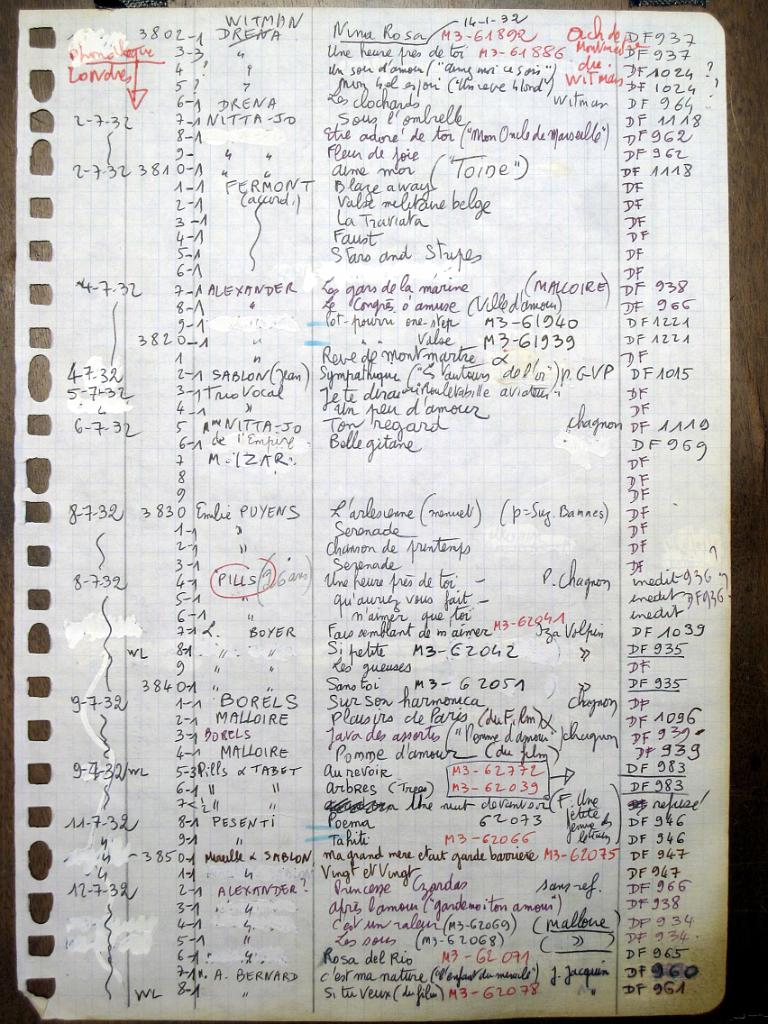 WITMAN 14-1-32
3802-1 DRENA Nina Rosa M3-61892 DF 937
Phonothèque Londres
3-3 " Une heure près de toi M3-61886 Witman DF 937
4 ? " un soir d'amour DF 1024 ?
5 ? " DF 1024 ?
6-1 DRENA Les clochards Witman DF 964
2-7-32 7-1 NITTA-JO Sous l'ombrelle DF 1118
8-1 Etre adoré de toi ("Mon Oncle de Marseille") DF 962
9- " " Fleur de joie DF 962
2-7-32 3810-1 " " aime moi ("TOINE") DF 1118
1-1 FERMONT Blaze away DF
2-1 (accord.) Valse militaire belge DF
3-1 La Traviata DF
4-1 Faust DF
5-1 Stars and Stripes DF
6-1 DF
4-7-32 7-1 ALEXANDER Les gars de la marine (MALLOIRE) DF 938
8-1 " Le Congrès s'amuse (Ville d'amour) DF 966
9-1 " Pot-pourri one-step M3-61940 DF 1221
3820-1 " " " Valse M3-61939 DF 1221
1 " Reve de Montmartre DF
4-7-32 2-1 SABLON (Jean) Sympathique p. GVP DF 1015
5-7-32 3-1 Trio Vocal Je te dirai DF
" 4-1 " Un peu d'amour DF
6-7-32 5 NITTA-JO Ton regard Chagnon DF 1119
6-1 de l'Empire Belle gitane DF 969
7 M. IZAR DF
8 DF
9 DF
8-7-32 3830 Emile PUYENS L'arlesienne (menuet) (p = Suz. Bannes) DF
1-1 " Serenade DF
2-1 " Chanson de printemps DF
3-1 Serenade DF
8-7-32 4-1 PILLS (26 ans) Une heure près de toi - P. Chagnon inedit 936 ?
5-1 " qu'auriez vous fait - inedit DF 936
6-1 " n'aimer que toi inedit
7-1 L. BOYER Fais semblant de m'aimer M3-62041 Iza Volpin DF 1039
WL 8-1 " " Si petite M3-62042 " DF 935
9 " " Les gueuses DF
3840-1 " " Sans toi M3-62051 " DF 935
9-7-32 1-1 BORELS Sur son harmonica Chagnon DF
2-1 MALLOIRE Plaisirs de Paris (du Film) DF 1096
3-1 BORELS Java des assorts "Pomme d'amour" Chagnon DF 939
4-1 MALLOIRE Pomme d'amour (du film) DF 939
9-7-32 WL 5-3 Pills & TABET Au revoir M3-62772 DF 983
6-1 " " Arbres (Trees) M3-62039 DF 983
7 " " Une nuit devant soi (F. Une petite femme refusé
11-7-32 8-1 PESENTI Poema 62073 DF 946
" 9-1 " Tahiti M3-62066 DF 946
" 3850-1 Mireille & SABLON ma grand mere etait garde barriere M3-62075 DF 947
" 1-1 " Vingt et Vingt DF 947
12-7-32 2-1 ALEXANDER ? Princesse Czardas sans ref. DF 966
3-1 " après l'amour ("garde moi ton amour") DF 938
4-1 " c'est un raleur (M3-62069) (Malloire) DF 934
5-1 " Les sous (M3-62068) ( " ) DF 934
6-1 " Rosa del Rio M3-62071 DF 965
7-1 A. BERNARD c'est ma nature ("l'enfant du miracle") J. Jacquin DF 960
WL 8-1 " Si tu veux (du film) M3-62078 " DF 961